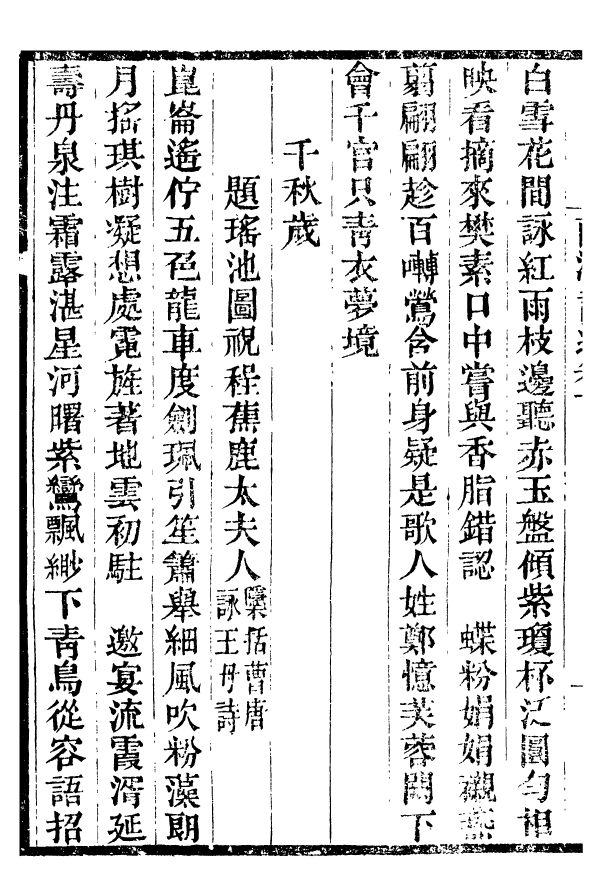 白雪花間詠紅雨枝邊聽赤玉盤傾紫瓊杯泛圓勻相
映看摘來樊素口中嘗與香脂錯認　蝶粉娟娟襯燕
翦翩翩趁百囀鶯含前身疑是歌人姓鄭憶芙蓉闕下
會千官只靑衣夢境
千秋歲
題瑤池圖祝程蕉鹿太夫人檃括曹唐詠王母詩
崑崙遙佇五色龍車度劍珮引笙簫舉細風吹粉藻朗
月搖琪樹凝想處霓旌著地雲初駐　邀宴流霞湑延
壽丹泉注霜露湛星河曙紫鸞飄緲下靑鳥從容語招